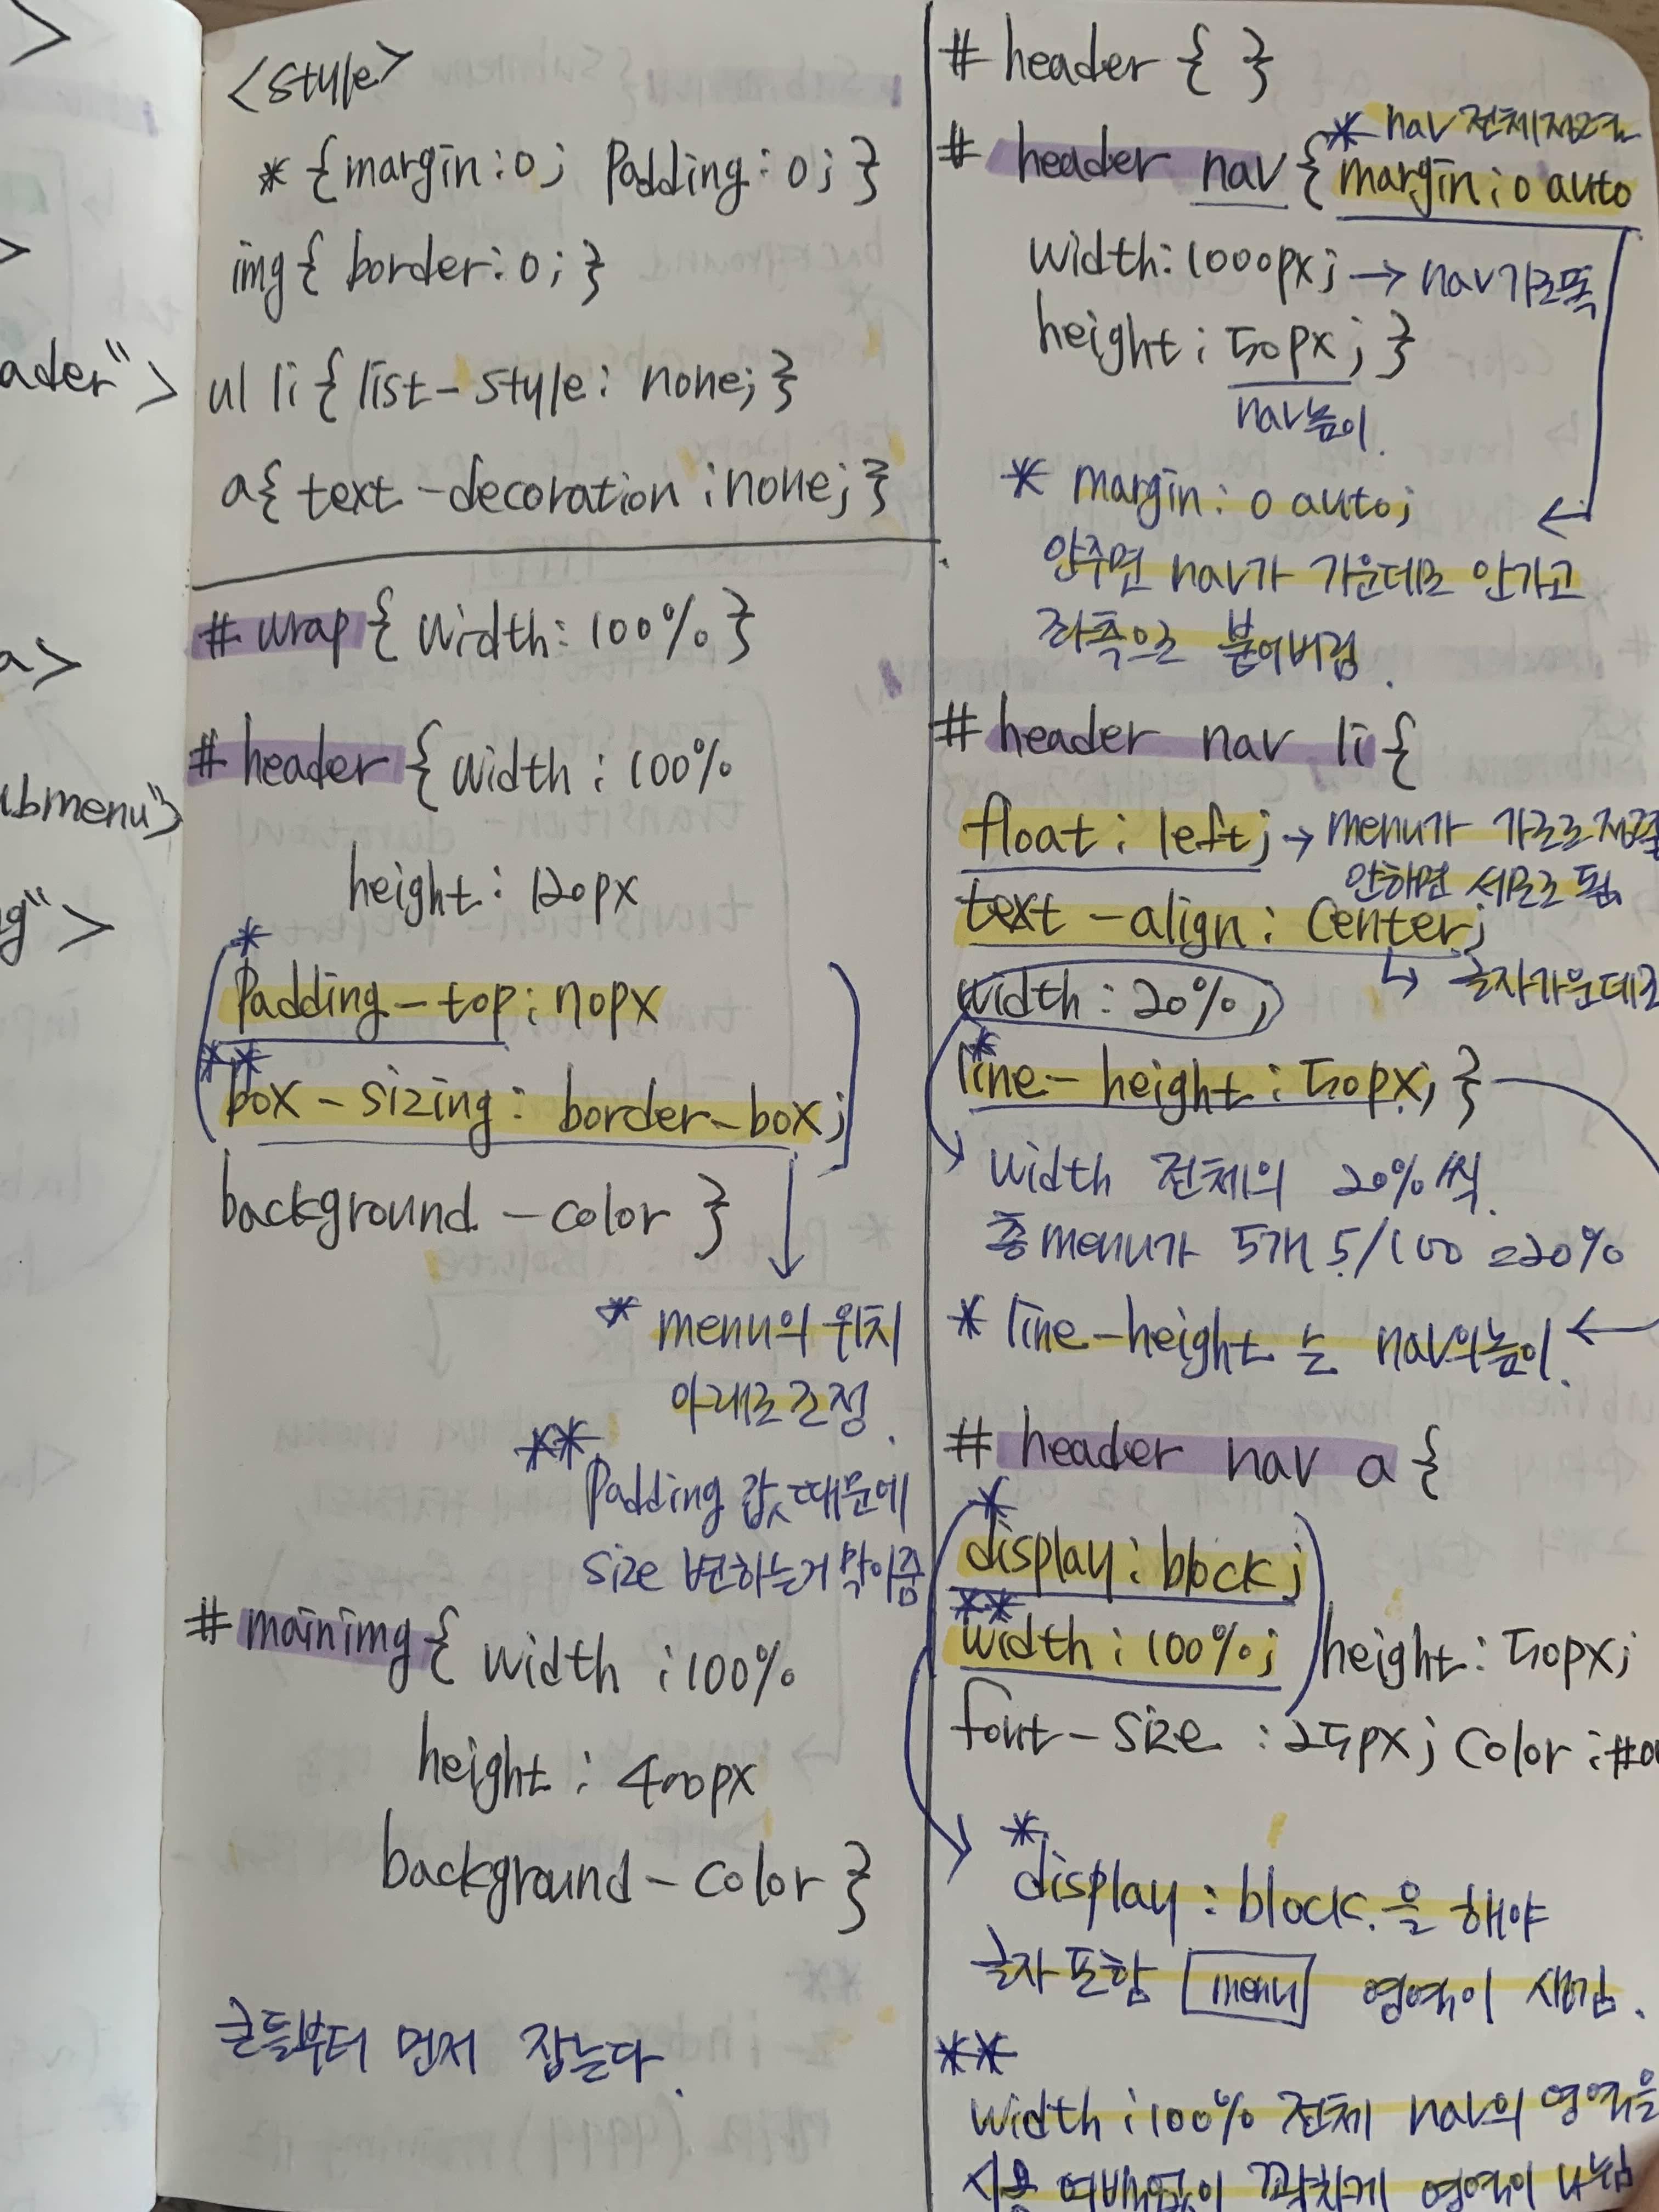 >
>
ader">
a>
ubmenu">
g">
<style>
* {margin:0; Padding:0;}
img{ border:0; }
ul li{list-style: none;}
a{ text-decoration:none;}
#wrap{ width:100% }
#header{width:100%
height:120px
*
Padding-top:70px
**
box-sizing: border-box;
background-color }
* menu의 위치
아래로 조정.
**
Padding 값 때문에
size 변하는거 막아줌
#mainimg{ width:100%
height:400px
background-color }
큰틀부터 먼저 잡는다.
# header { }
* nav 전체
# header nav { margin:0 auto
width:1000px; → nav 가로폭
height:50px; }
nav높이.
* margin:0 auto;
안주면 nav가 가운데로 안가고
좌측으로 붙어버림.
# header nav li{
float:left; → menu가 가로로
안하면 세로로 됨
text-align: Center;
↳ 글자가운데로
width:20%;
*
line-height:50px; }
width 전체의 20%씩.
총 menu가 5개 5/100 =20%
* line-height 는 nav의높이.
# header nav a {
*
display:block;
**
width:100%; height:50px;
font-size:25px; Color:#0
*
display:block.을 해야
글자 포함 menu 영역이 생김.
**
width:100% 전체 nav의 영역을
사용 여백없이 꽉차게 영역이 나뉨